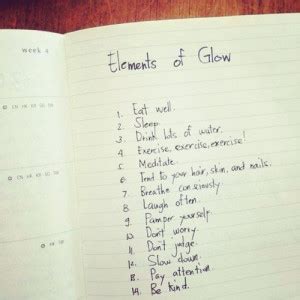 week 4
Elements of Glow
1. Eat well.
2. Sleep.
3. Drink lots of water.
4. Exercise, exercise, exercise!
5. Meditate.
6. Tend to your hair, skin, and nails.
7. Breathe consciously.
8. Laugh often.
9. Pamper yourself.
10. Don't worry.
11. Don't judge.
12. Slow down.
13. Pay attention.
14. Be kind.